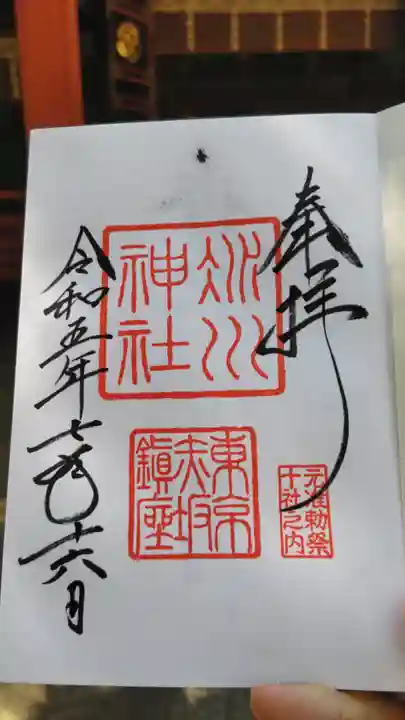 奉拝
氷川
神社
東京
赤坂
鎮座
元准勅祭
十社之内
令和五年七月十六日